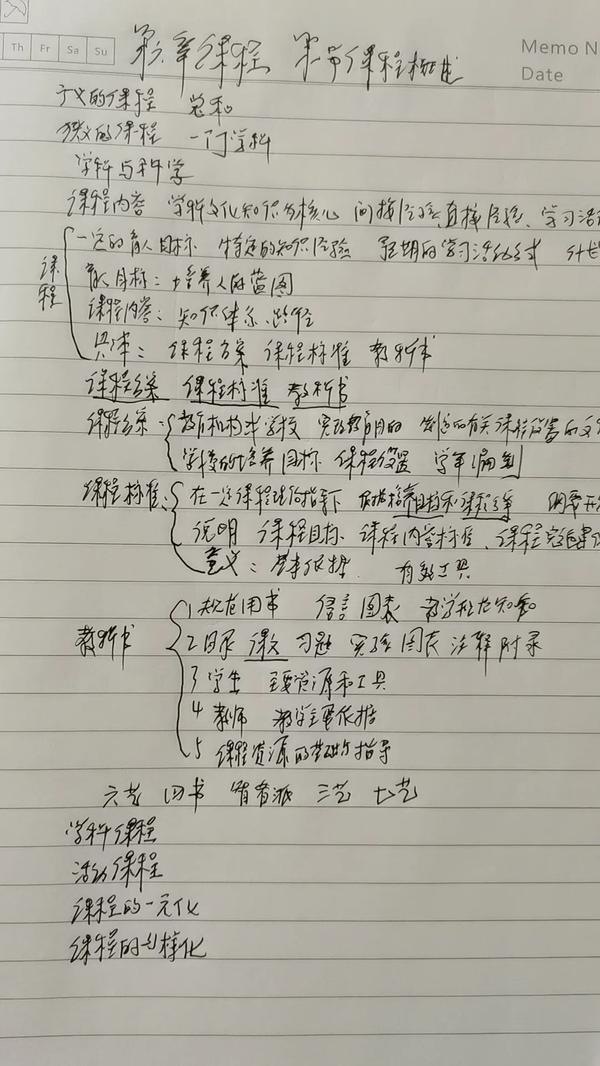 Th Fr Sa Su
Memo N
Date
第六章课程 第一节课程概述
广义的课程 总和
狭义的课程 一门学科
学科与科学
课程内容 学科文化知识为核心 间接经验、直接经验、学习活动
课程
一定的育人目标 特定的知识经验 预期的学习活动方式
育人目标：培养人的蓝图
课程内容：知识体系、路径
具体：课程方案 课程标准 教科书
课程方案 课程标准 教科书
课程方案：教育机构或学校 实现教育目的 制定的有关课程设置的文
学校的培养目标 课程设置 学年编制
课程标准：在一定课程理论指导下 依据培养目标和课程方案 纲要
说明 课程目标、课程内容标准、课程实施建议
意义：基本依据 有效工具
教科书
1 规范用书 语言 图表 学科知识
2 目录 课文 习题 实验 图表 注释 附录
3 学生 主要资源和工具
4 教师 教学主要依据
5 课程资源的基础与指导
六艺 四书 智者派 三艺 七艺
学科课程
活动课程
课程的一元化
课程的多样化